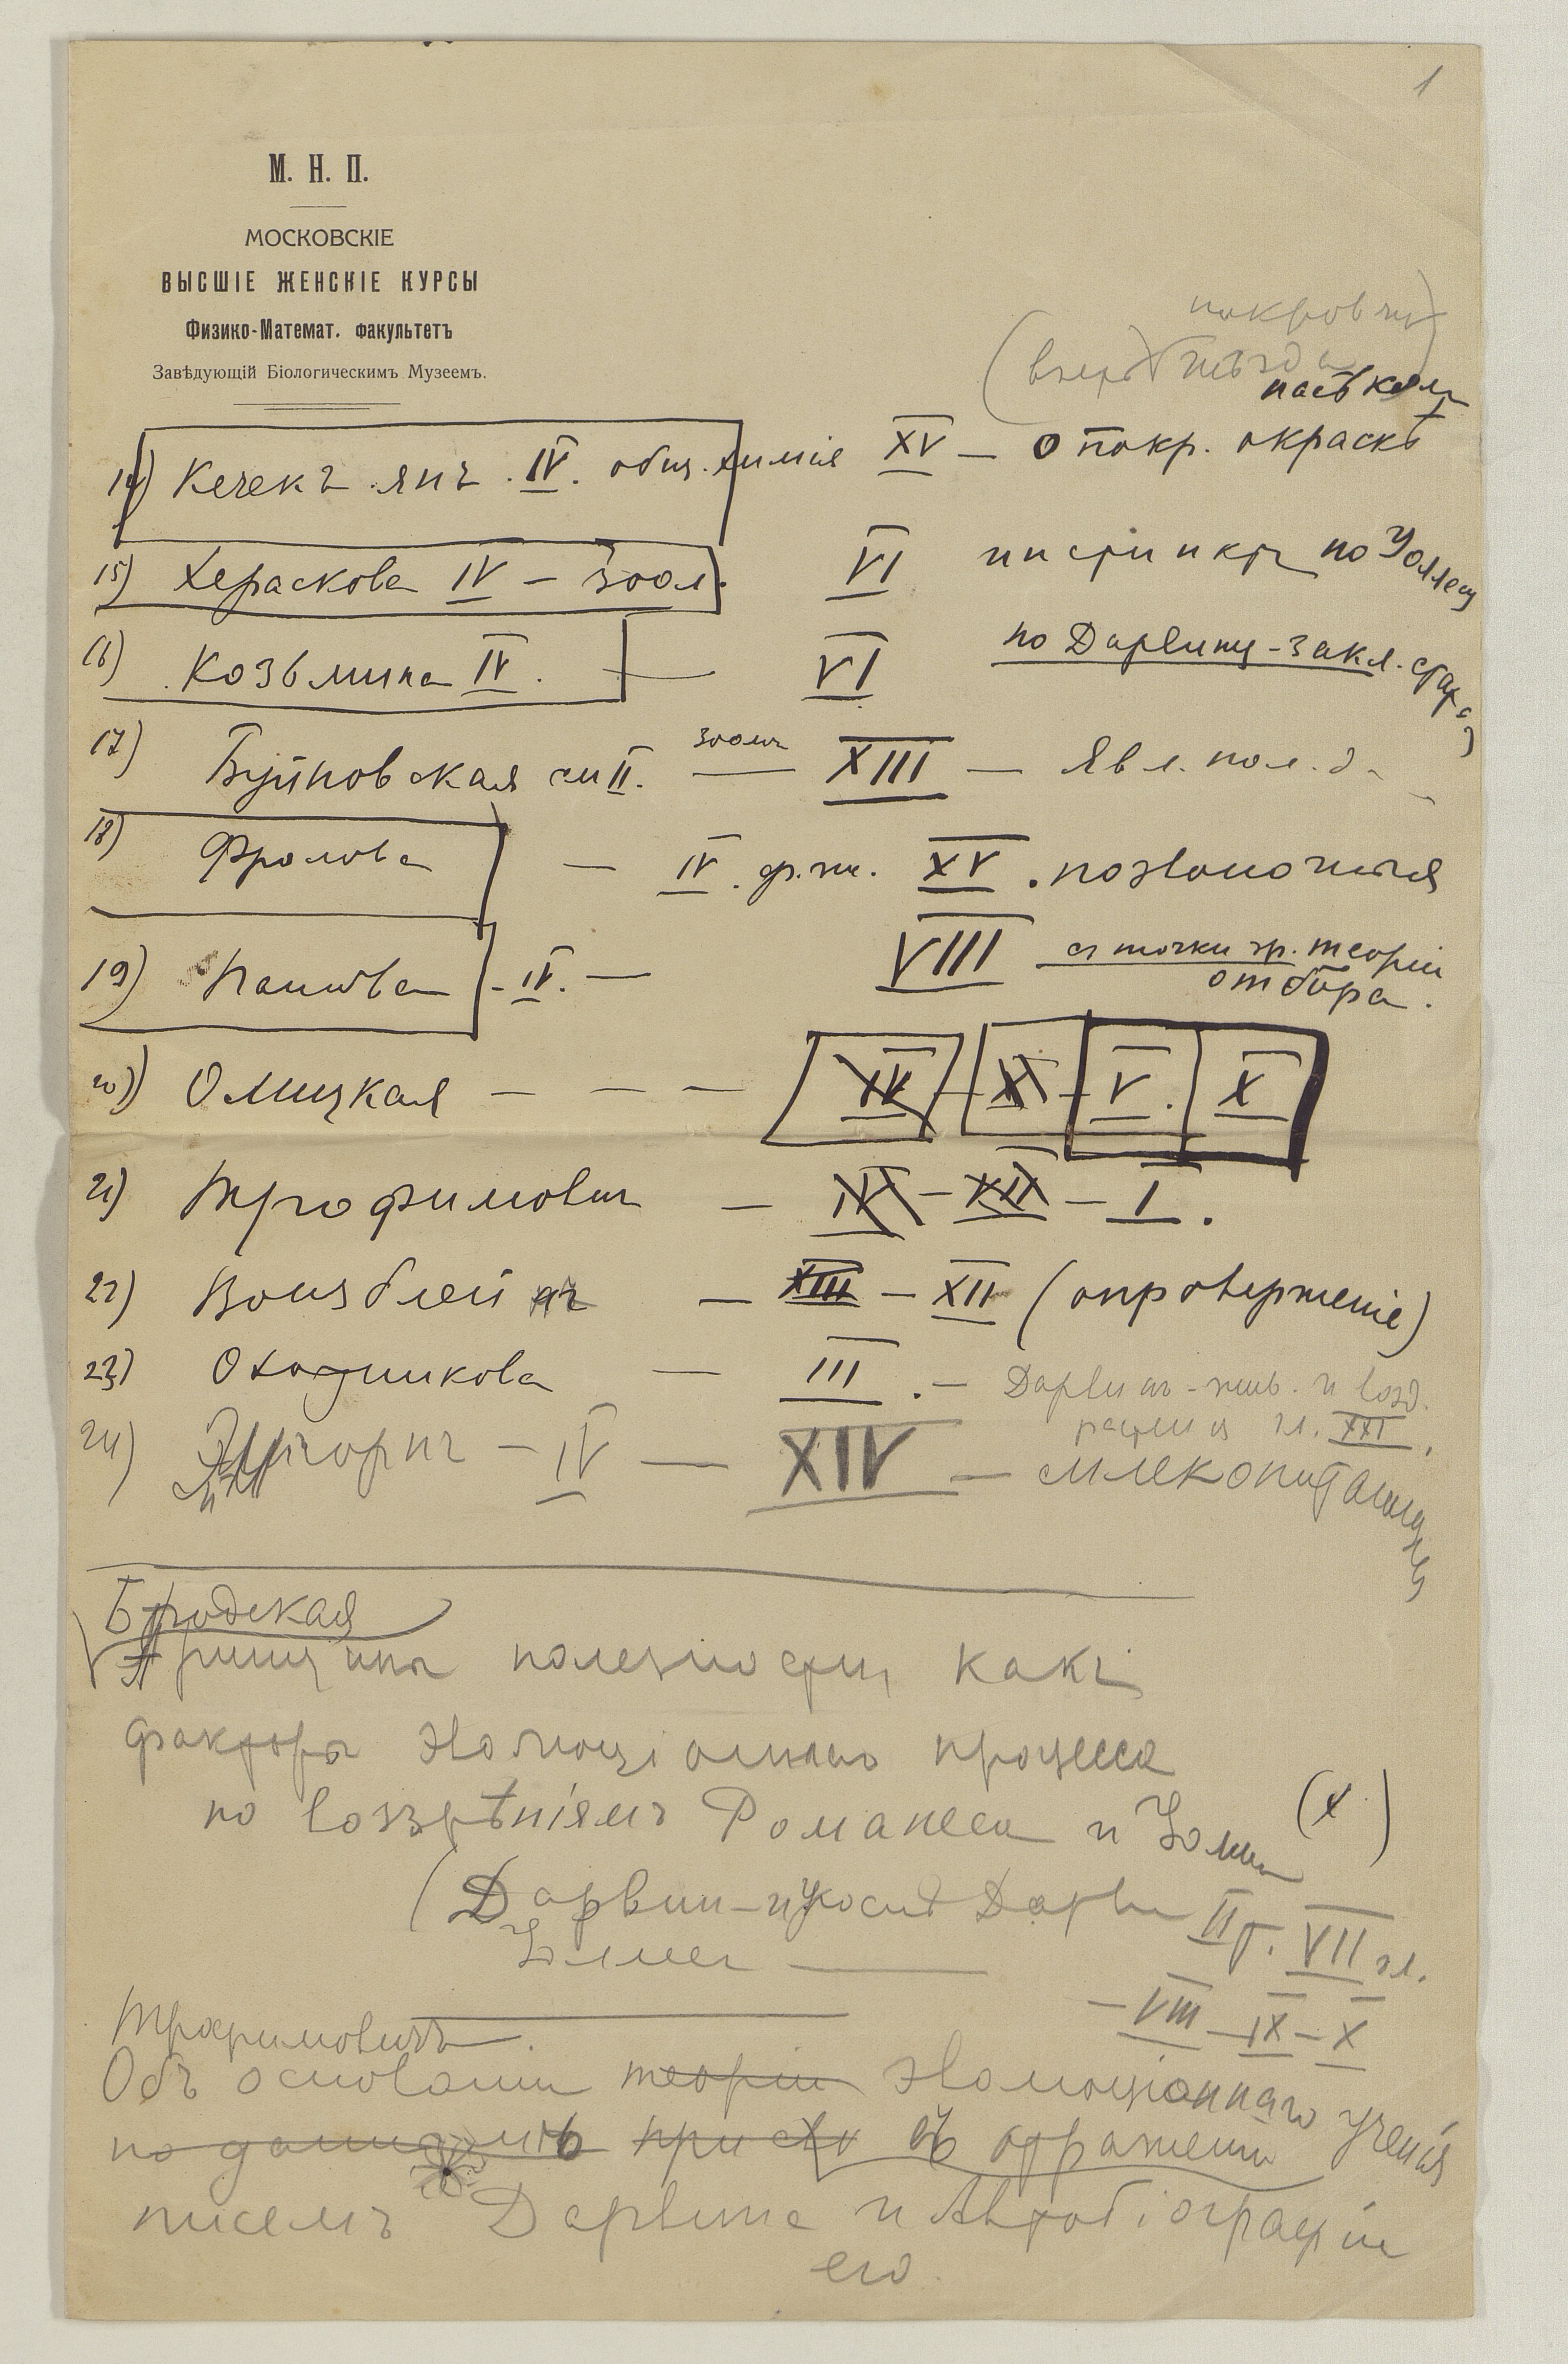 1
М. Н. П.
МОСКОВСКІЕ
ВЫСШІЕ ЖЕНСКІЕ КУРСЫ
Физико-Математ. факультетъ
Завѣдующій Біологическимъ Музеемъ.
насѣком
14) Кечекъ янъ. IV. общ. химія XV — о покр. окраскѣ
15) Хераскова IV — зоол. VI инстинктъ по Уоллесу
16) Козьмина IV. — VI по Дарвину - закл.
17) Буйновская II. — XIII — Явл. пол.
18) Фролова — IV. XV. позвоночныя
19) IV. — VIII съ точки зр. теоріи
отбора.
20) Олицкая — — — XV XI V. X
21) Трофимович — IX — XII — I.
22) — XIII — XII (опроверженіе)
23) Охотникова — III. —
гл. XXI.
24) — IV — XIV — млекопитающія
Бродская
Принципъ полезности какъ
факторъ эволюціоннаго процесса
по воззрѣніямъ Романеса и (X)
(Дарвин — Дарви II т. VII гл.
— VIII — IX — X
Трофимовичъ.
Объ основаніи теоріи эволюціоннаго ученія
по даннымъ въ отраженіи
писемъ Дарвина и Автобіографіи
его.